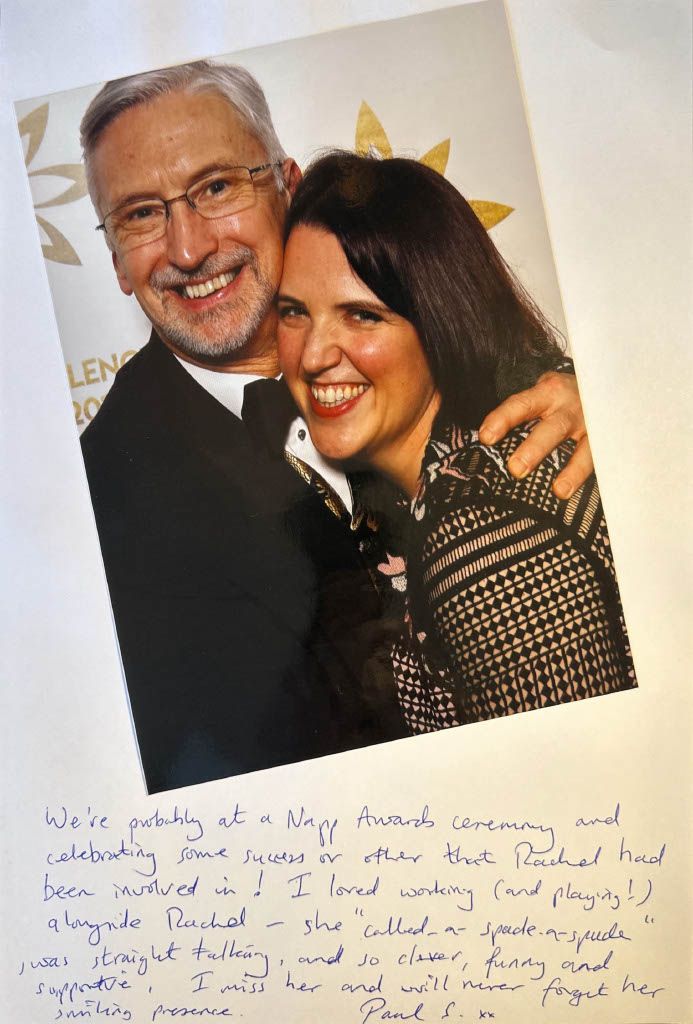 LENC
20
We're probably at a Napp Awards ceremny and
celebrating some success or other that Rachel had
been involved in! I loved working (and playing!)
alongside Rachel – she "called-a-spade-a-spade"
, was straight talking, and so clever, funny and
supportive. I miss her and will never forget her
smiling presence. Paul S. xx